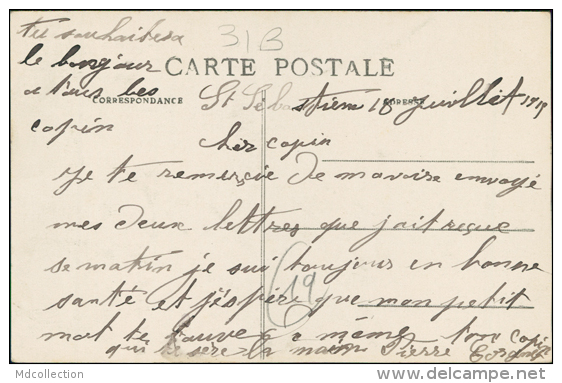 tu souhaitera
le bonjour
a tous les
copin
31B
CARTE POSTALE
CORRESPONDANCE
ADRESSE
St Sébastien 18 juillet 1919
cher copin
je te remerçie de mavoire envoyé
mes deux lettres que jait reçue
se matin je sui toujour en bonne
santé et j'éspére que mon petit
mot te trouve a mémes ton copin
qui te sere la main Pierre
19
Mdcollection
delcampe.net